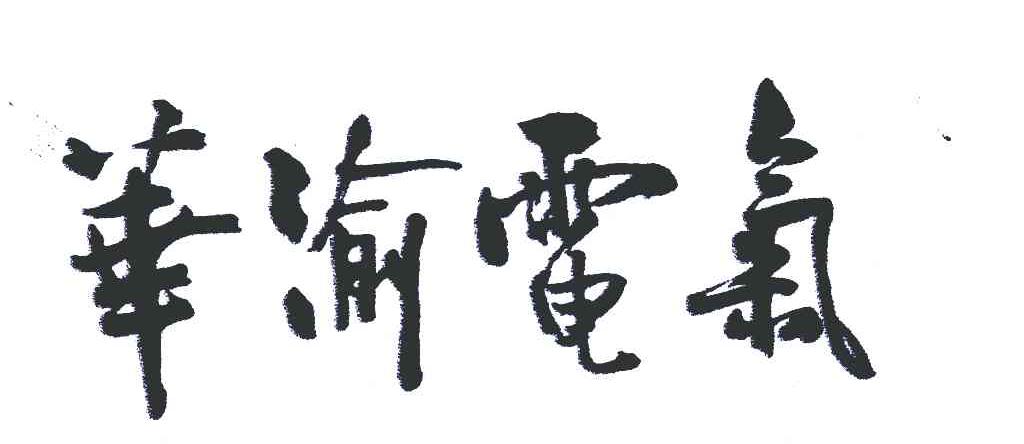 華渝電氣